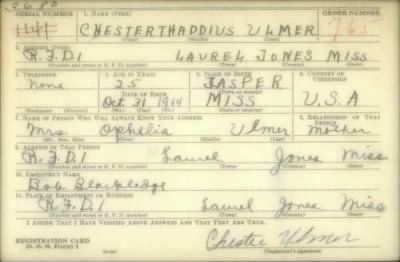 SERIAL NUMBER 1. NAME (Print) ORDER NUMBER
1141 CHESTER THADDIUS ULMER
(First) (Middle) (Last)
2. ADDRESS (Print)
R.F.D 1 LAUREL JONES MISS
(Number and street or R. F. D. number) (Town) (County) (State)
3. TELEPHONE 4. AGE IN YEARS 5. PLACE OF BIRTH 6. COUNTRY OF CITIZENSHIP
None 25 JASPER
DATE OF BIRTH (Town or county)
Oct. 31 1914 MISS U.S.A
(Exchange) (Number) (Mo.) (Day) (Yr.) (State or country)
7. NAME OF PERSON WHO WILL ALWAYS KNOW YOUR ADDRESS 8. RELATIONSHIP OF THAT PERSON
Mrs. Ophelia Ulmer Mother
(Mr., Mrs., Miss) (First) (Middle) (Last)
9. ADDRESS OF THAT PERSON
R.F.D 1 Laurel Jones Miss
(Number and street or R. F. D. number) (Town) (County) (State)
10. EMPLOYER'S NAME
Bob Blackledge
11. PLACE OF EMPLOYMENT OR BUSINESS
R.F.D 1 Laurel Jones Miss
(Number and street or R. F. D. number) (Town) (County) (State)
I AFFIRM THAT I HAVE VERIFIED ABOVE ANSWERS AND THAT THEY ARE TRUE.
REGISTRATION CARD
D. S. S. Form 1 (over) Chester Ulmer
(Registrant's signature)